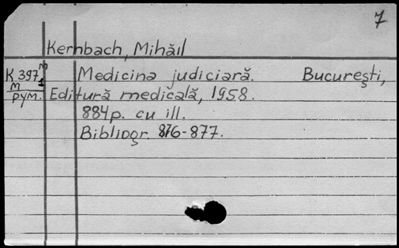 7
Kernbach, Mihăil
K 397 Medicina judiciară. București,
M
рум. Editură medicală, 1958.
884p. cu ill.
Bibliogr. 876-877.